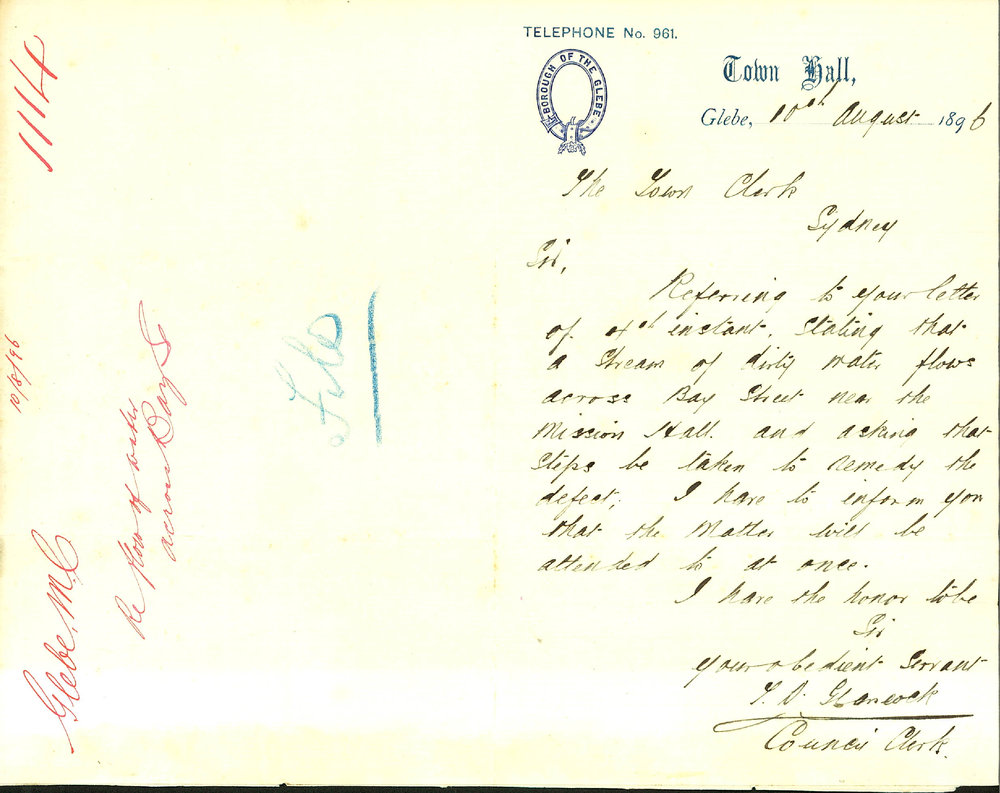 TELEPHONE No. 961.
BOROUGH OF THE GLEBE.
Town Hall,
Glebe, 10th August 1896
The Town Clerk
Sydney
Sir,
Referring to your letter
of 4th instant, stating that
a stream of dirty water flows
across Bay Street near the
Mission Hall. and asking that
steps be taken to remedy the
defect; I have to inform you
that the matter will be
attended to at once.
I have the honor to be
Sir
your obedient servant
Council Clerk.
File
Re flow of water
across Bay St
Glebe. M.C
10/8/96
1114